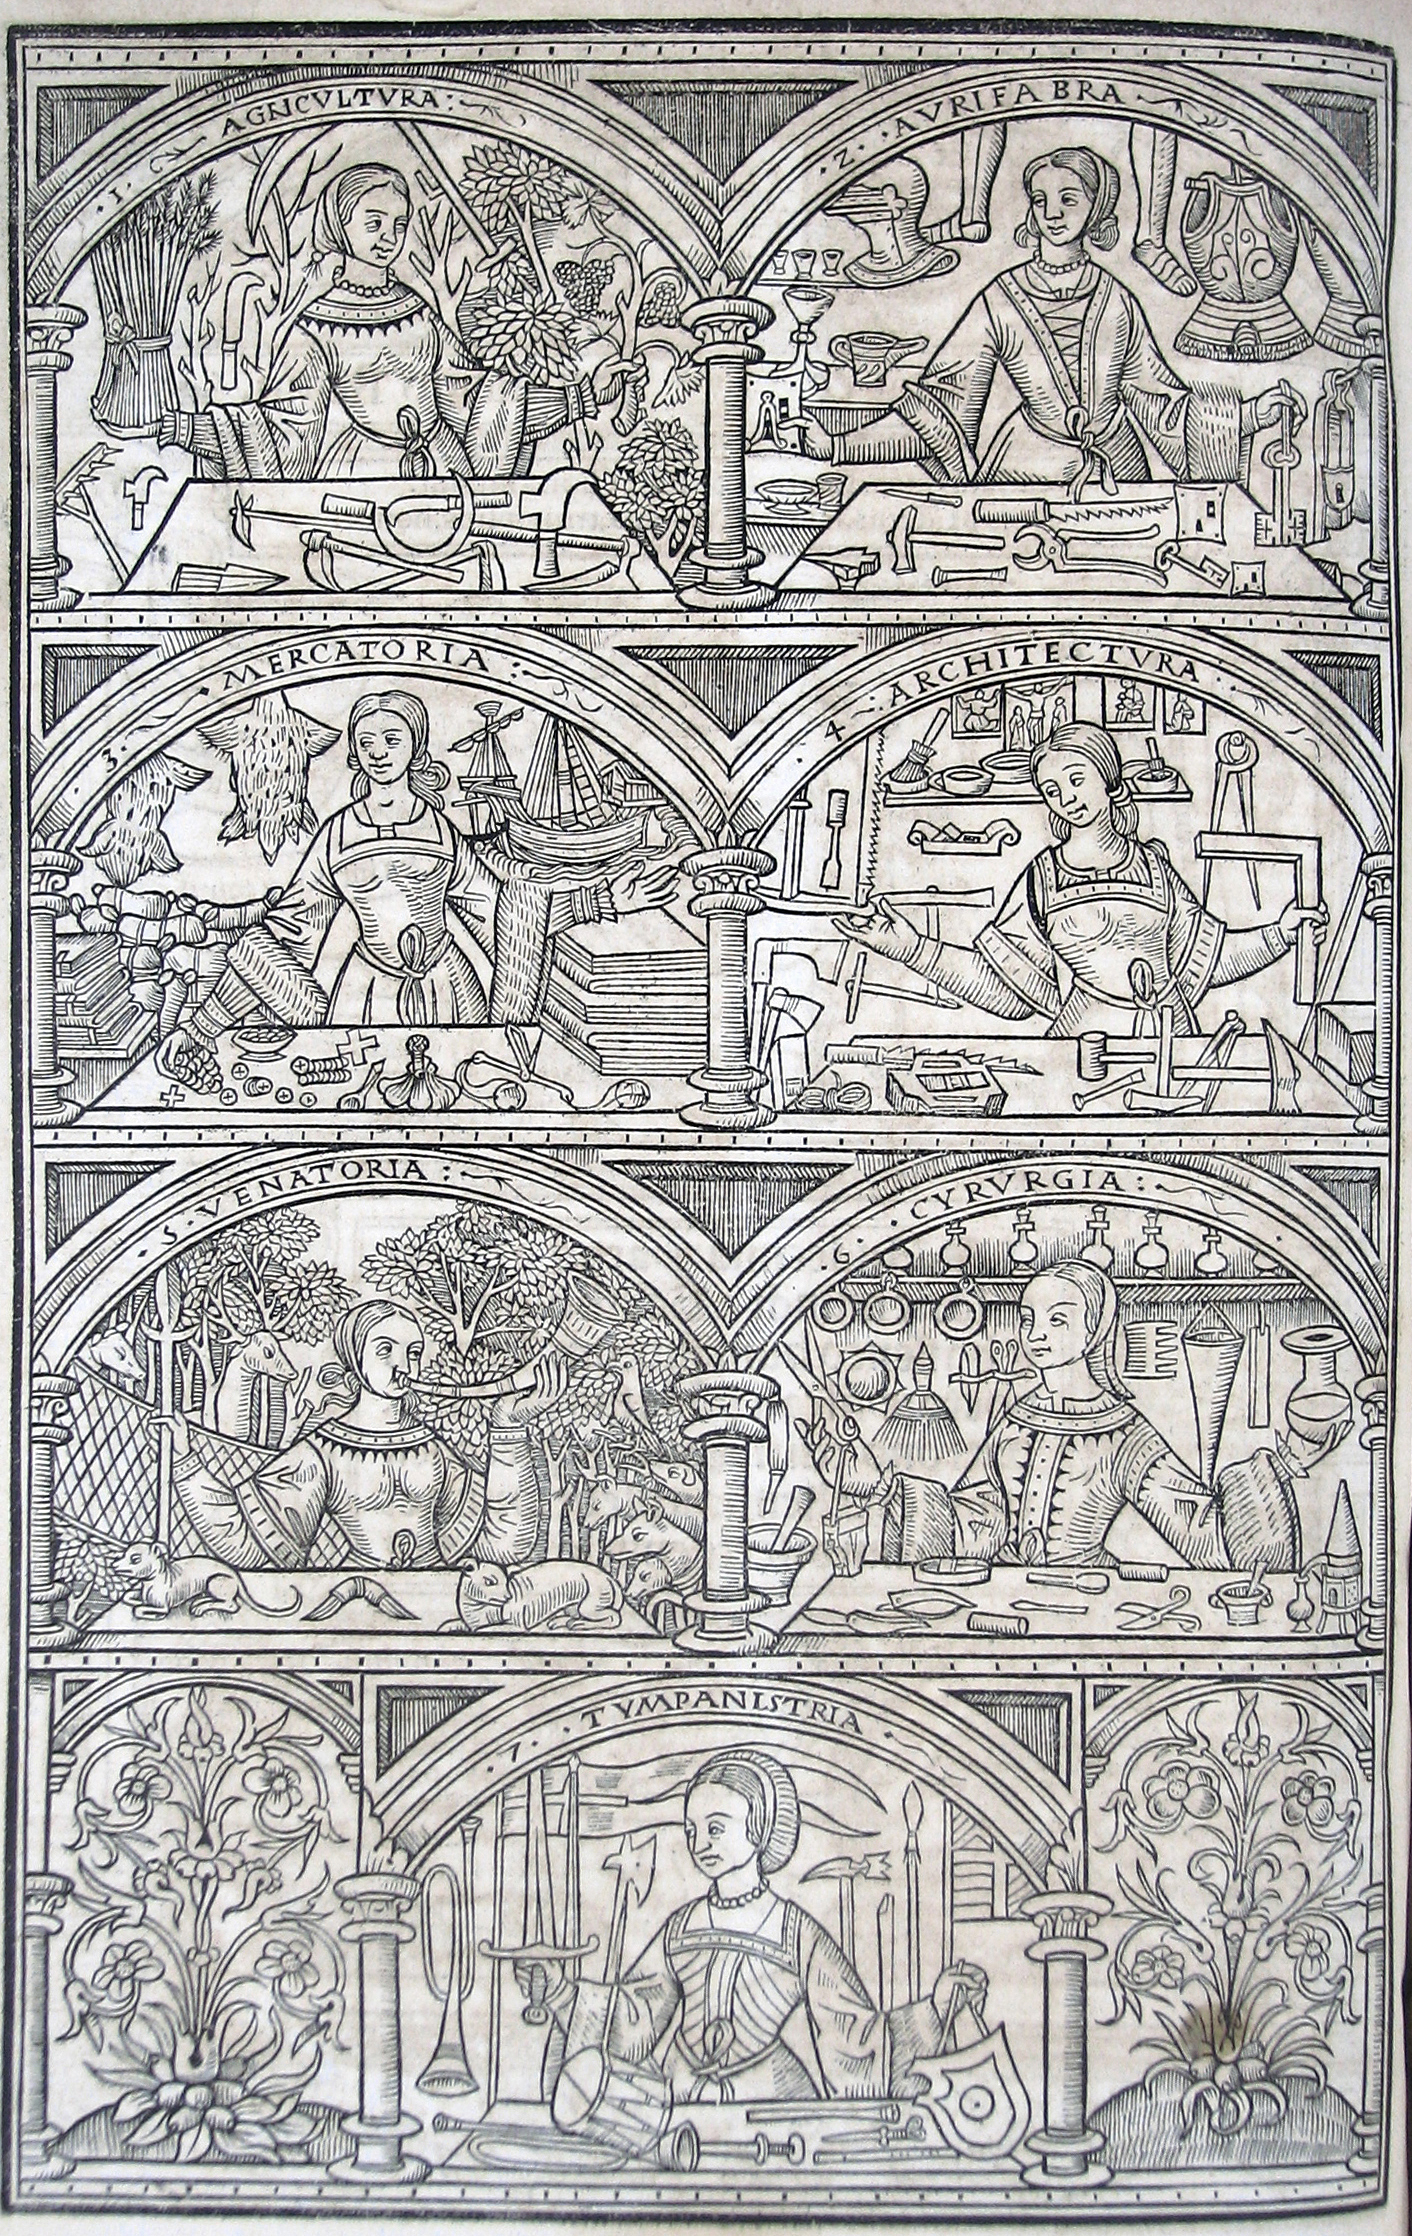 ·1· AGRICVLTVRA:
·2· ·AVRIFABRA
3· ·MERCATORIA:
4· ·ARCHITECTVRA·
·5· VENATORIA:
·6· ·CYRVRGIA:
7· ·TYMPANISTRIA·